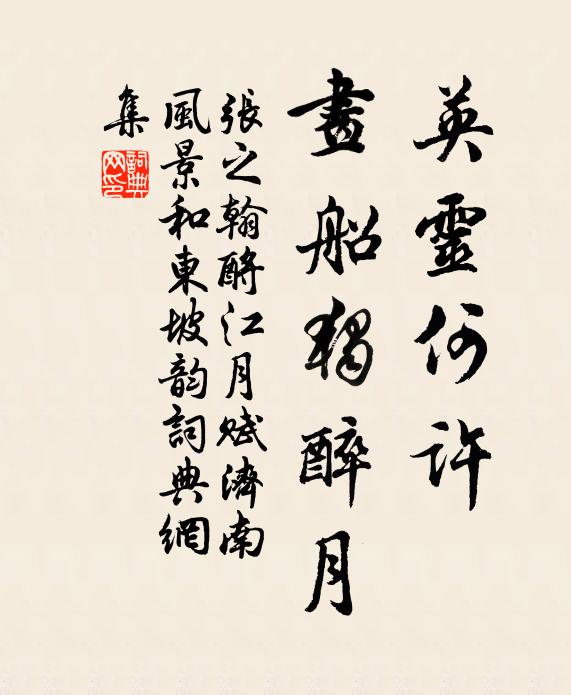 英靈何許
畫船獨醉月
張之翰酹江月賦濟南
風景和東坡韵詞典網
集
詞典
网印